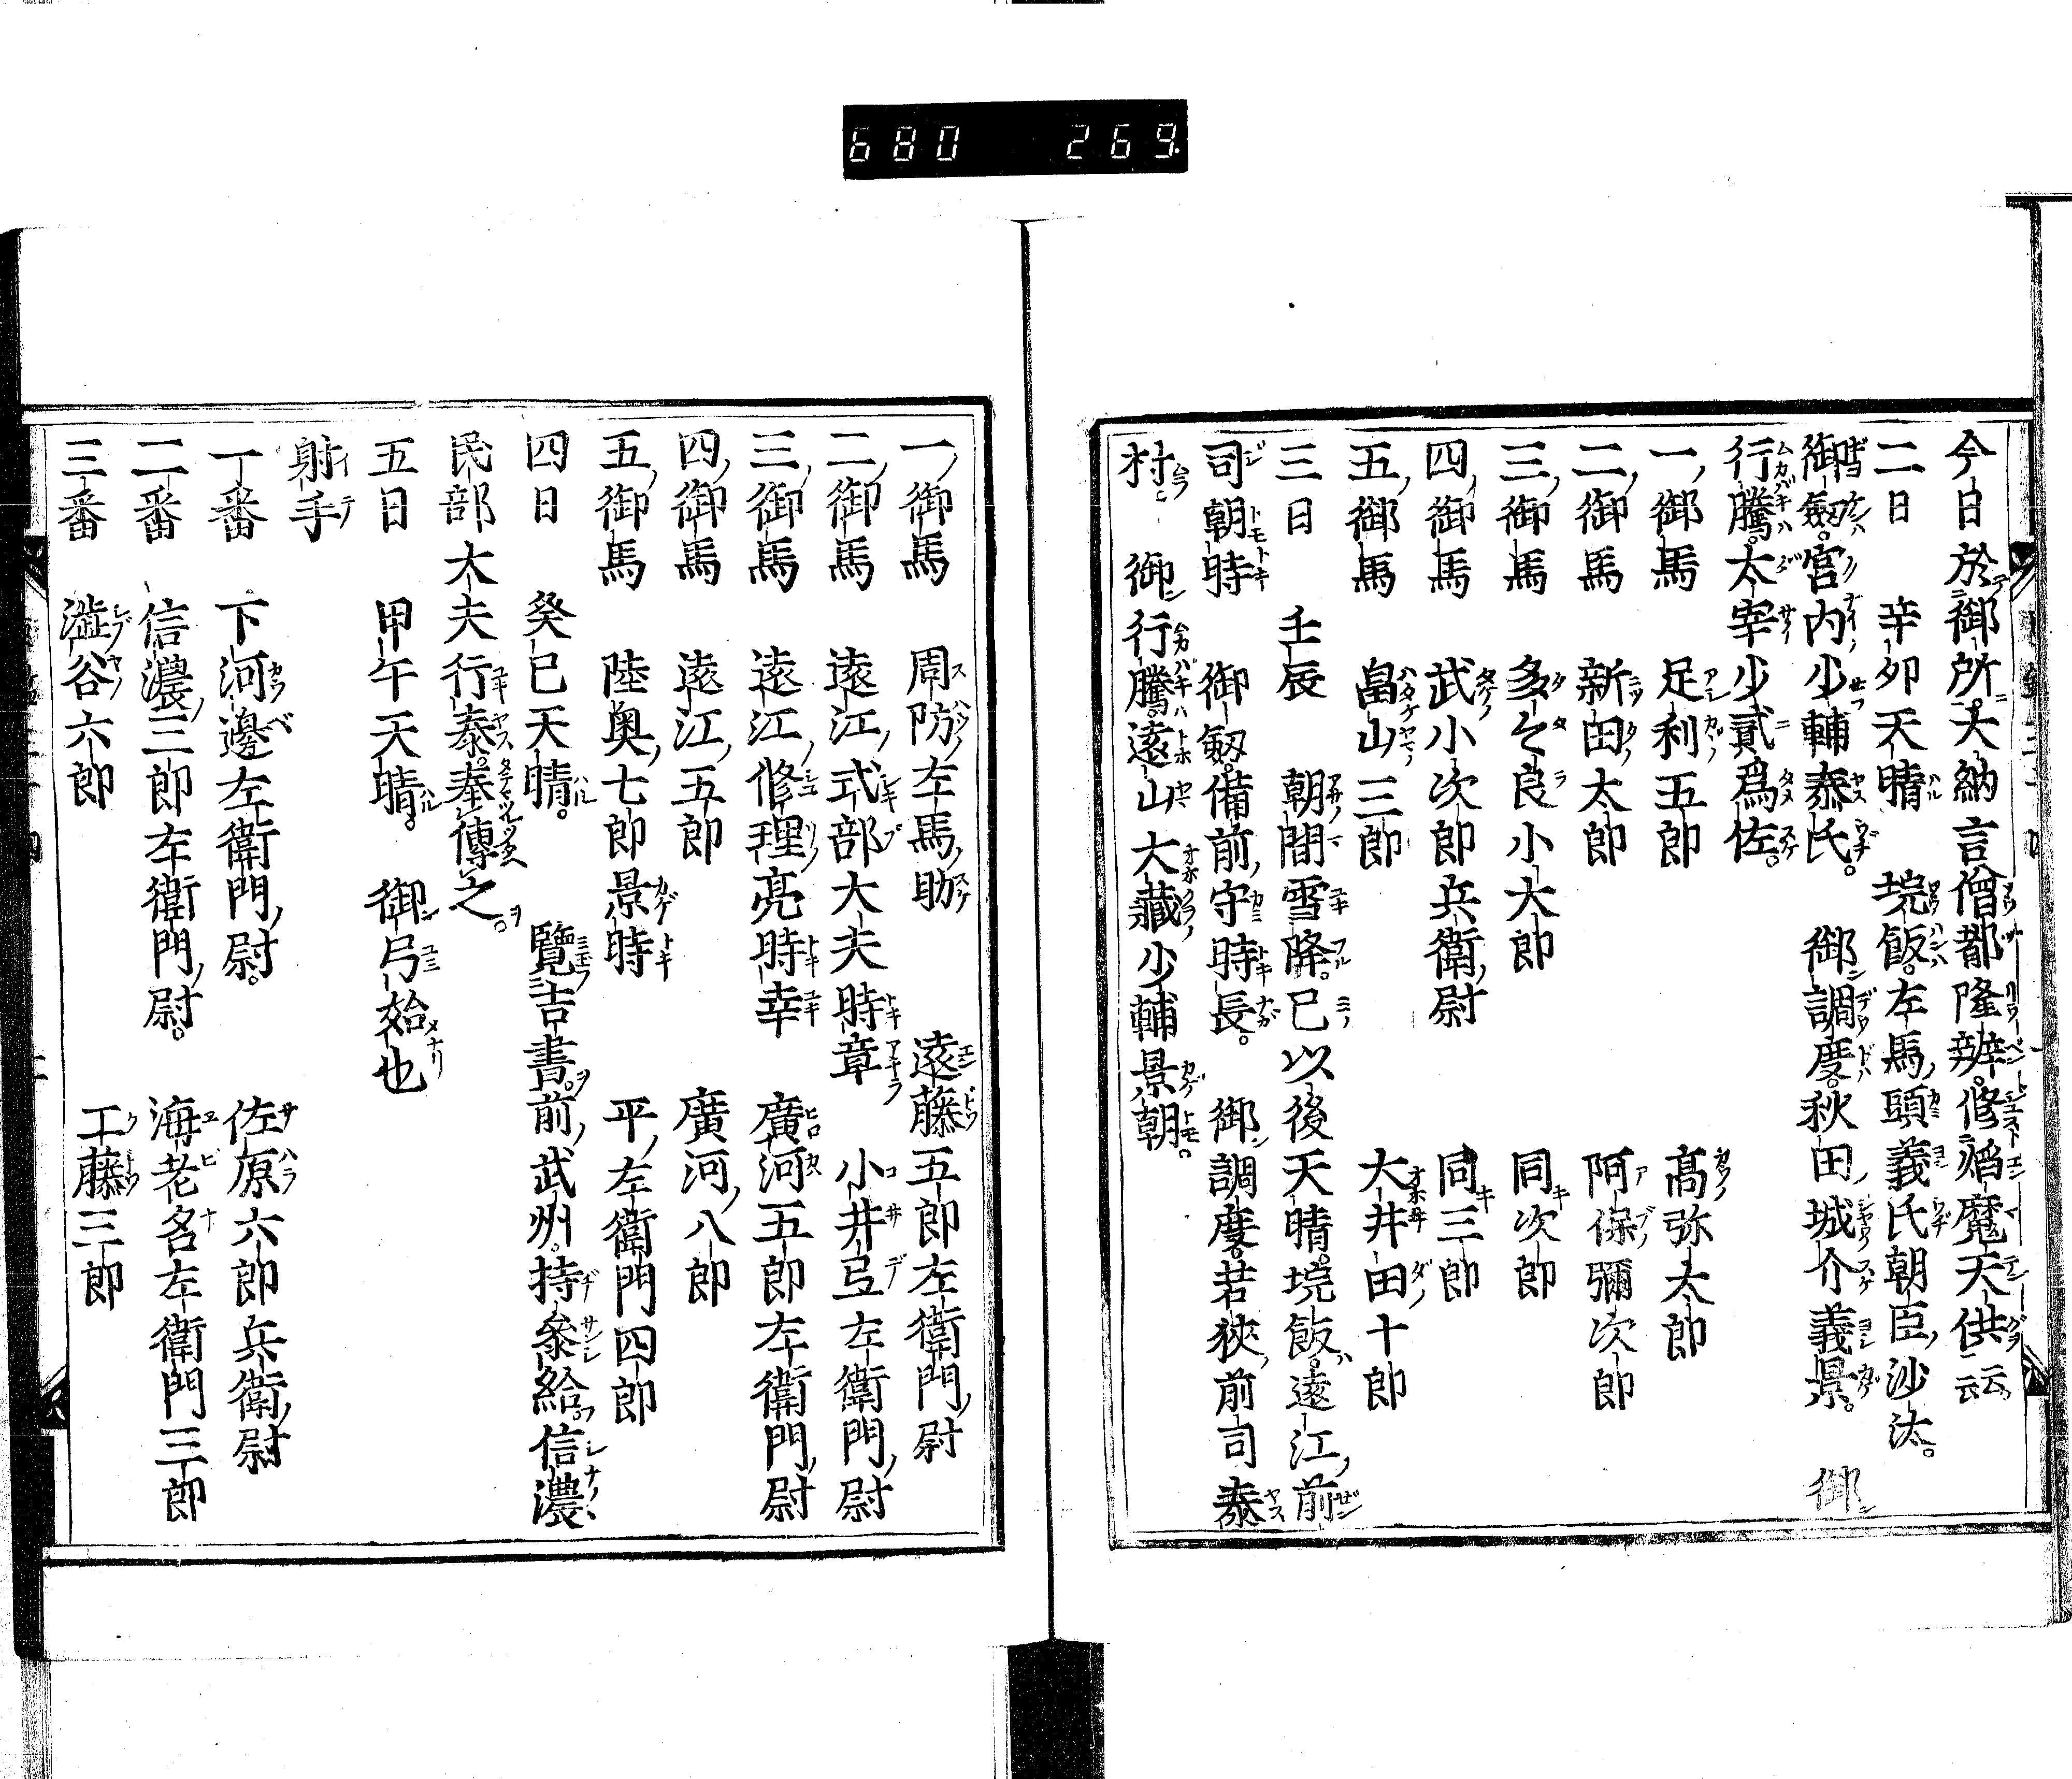 680 269
今日於御所大納言僧都隆辨修焔魔天供云云
二日 辛夘天晴 埦飯左馬頭義氏朝臣沙汰
御劔宮内少輔泰氏 御調度秋田城介義景 御
行騰太宰少貳爲佐
一御馬 足利五郎 髙弥太郎
二御馬 新田太郎 阿保彌次郎
三御馬 多々良小大郎 同次郎
四御馬 武小次郎兵衛尉 同三郎
五御馬 畠山三郎 大井田十郎
三日 壬辰 朝間雪降巳以後天晴埦飯遠江前
司朝時 御劔備前守時長 御調度若狹前司泰
村 御行騰遠山大藏少輔景朝
一御馬 周防左馬助 遠藤五郎左衛門尉
二御馬 遠江式部大夫時章 小井弖左衛門尉
三御馬 遠江修理亮時幸 廣河五郎左衛門尉
四御馬 遠江五郎 廣河八郎
五御馬 陸奥七郎景時 平左衛門四郎
四日 癸巳天晴 覽吉書前武州持參給信濃
民部大夫行泰奉傳之
五日 甲午天晴 御弓始也
射手
一番 下河邊左衛門尉 佐原六郎兵衛尉
二番 信濃三郎左衛門尉 海老名左衛門三郎
三番 澁谷六郎 工藤三郎